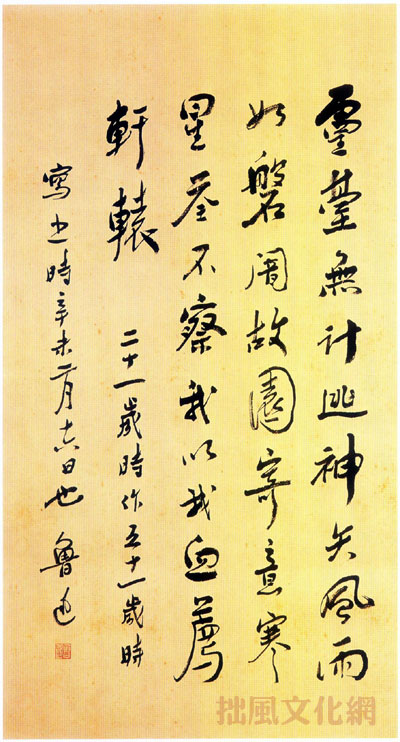 靈臺無計逃神矢風雨
如磐闇故園寄意寒
星荃不察我以我血薦
軒轅 二十一歲時作五十一歲時
寫之時辛未二月十六日也 魯迅
拙風文化網